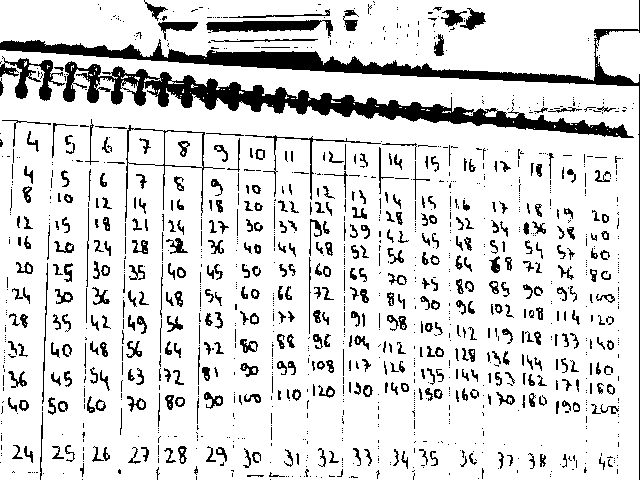 4 5 6 7 8 9 10 11 12 13 14 15 16 17 18 19 20
4 5 6 7 8 9 10 11 12 13 14 15 16 17 18 19 20
8 10 12 14 16 18 20 22 24 26 28 30 32 34 36 38 40
12 15 18 21 24 27 30 33 36 39 42 45 48 51 54 57 60
16 20 24 28 32 36 40 44 48 52 56 60 64 68 72 76 80
20 25 30 35 40 45 50 55 60 65 70 75 80 85 90 95 100
24 30 36 42 48 54 60 66 72 78 84 90 96 102 108 114 120
28 35 42 49 56 63 70 77 84 91 98 105 112 119 128 133 140
32 40 48 56 64 72 80 88 96 104 112 120 128 136 144 152 160
36 45 54 63 72 81 90 99 108 117 126 135 144 153 162 171 180
40 50 60 70 80 90 100 110 120 130 140 150 160 170 180 190 200
24 25 26 27 28 29 30 31 32 33 34 35 36 37 38 39 40